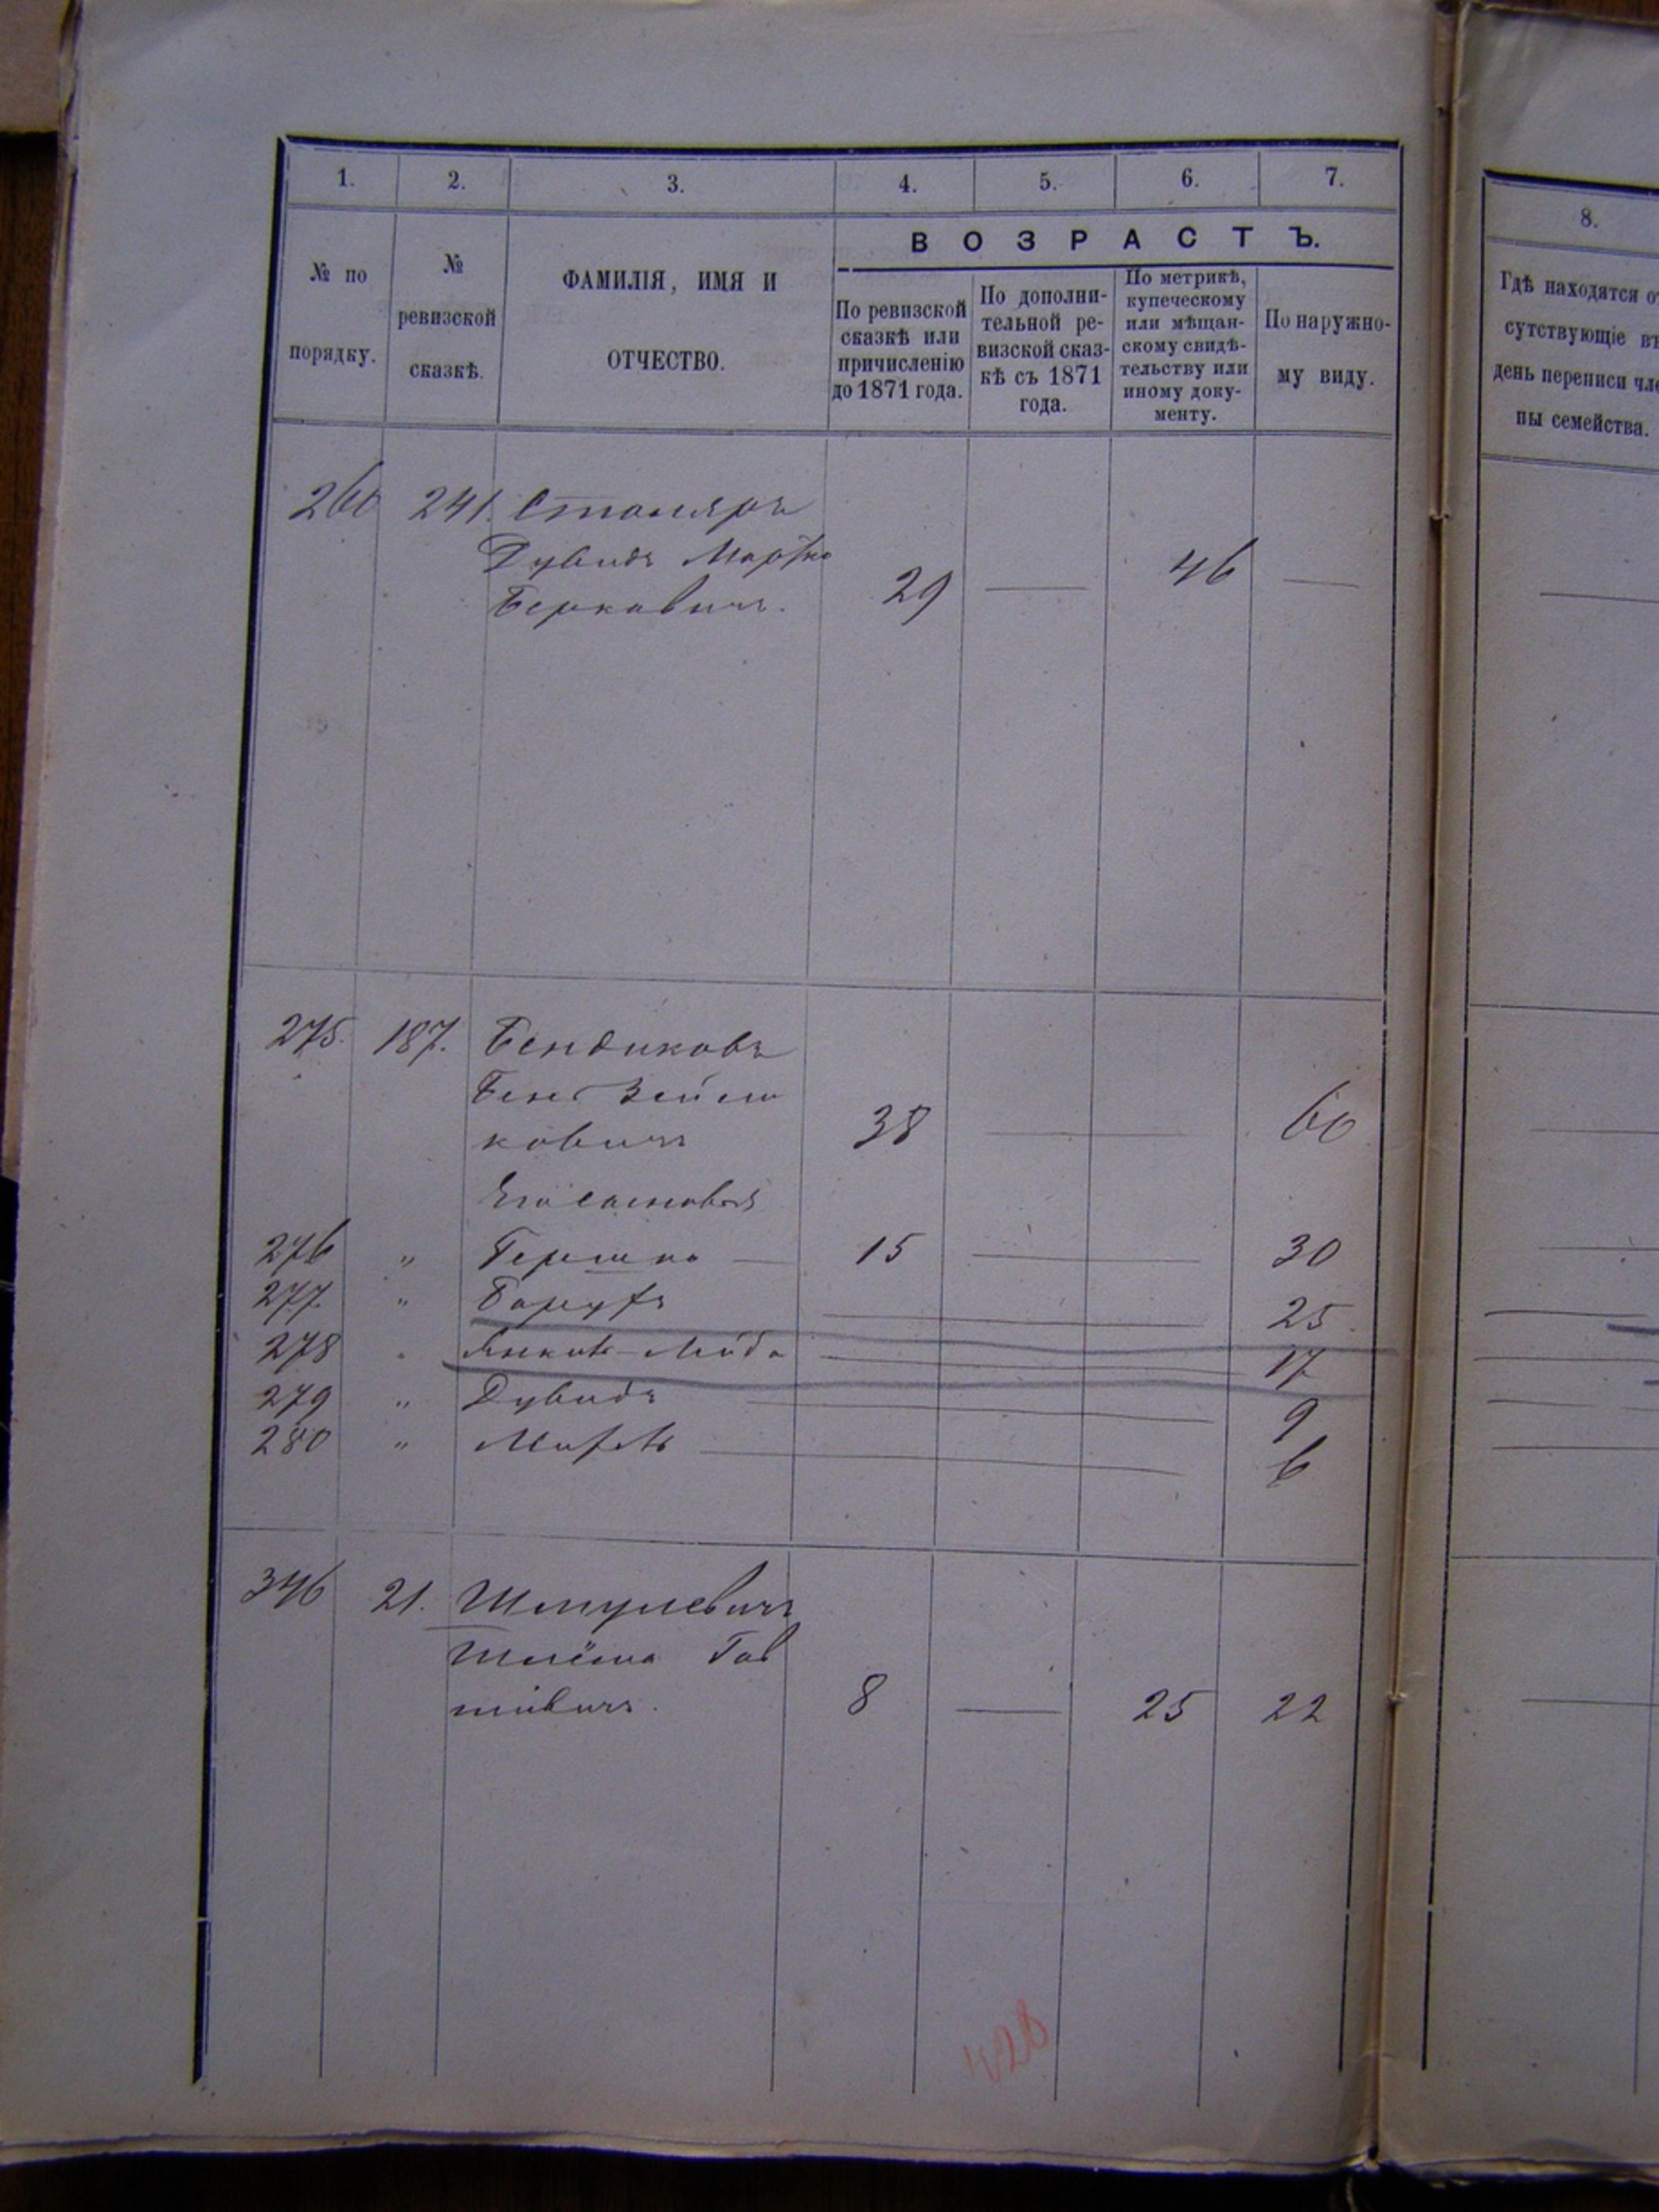 1. 2. 3. 4. 5. 6. 7.
№ по порядку.
№ ревизской сказкѣ.
ФАМИЛІЯ, ИМЯ И ОТЧЕСТВО.
ВОЗРАСТЪ.
По ревизской сказкѣ или причисленію до 1871 года.
По дополнительной ревизской сказкѣ съ 1871 года.
По метрикѣ, купеческому или мѣщанскому свидѣтельству или иному документу.
По наружному виду.
260 241. Столяръ
Дувидъ
Берковичъ. 29 — 46 —
275. 187. Бендиковъ
Зейли
ковичъ 38 — 60
Его сыновья
276 " Гершко — 15 — 30
277. " Борухъ — 25
278 " — 17
279 " Дувидъ — 9
280 " — 6
346 21. Шмулевичъ
Шлёма Гов
шiвичъ. 8 — 25 22
428
8.
Гдѣ находятся от
сутствующіе въ
день переписи чле
ны семейства.